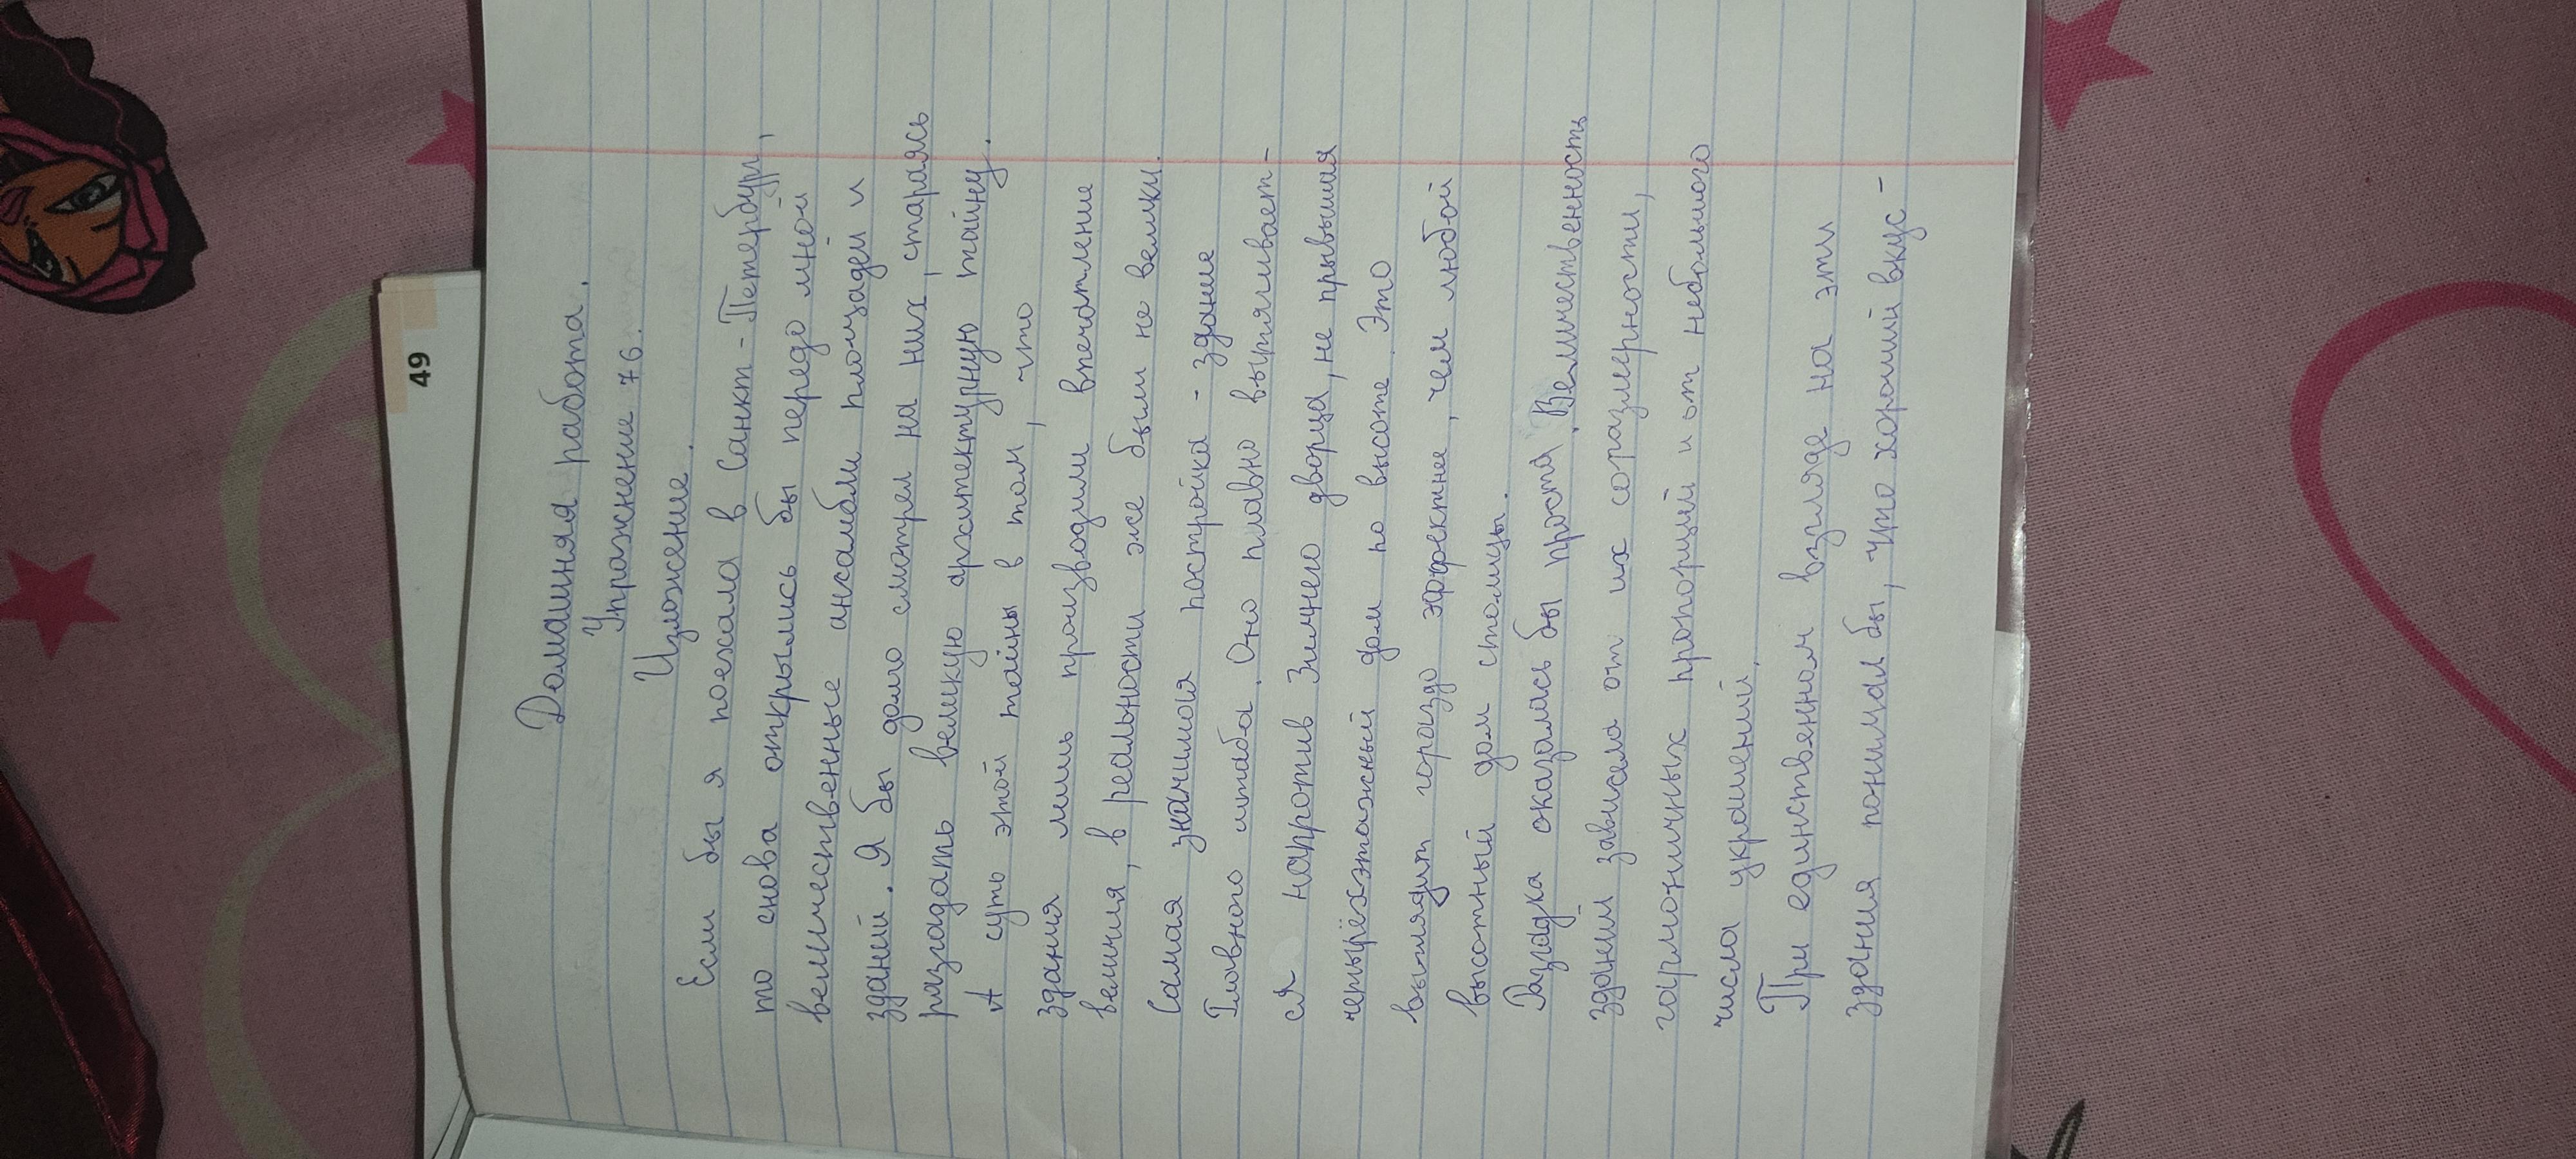 49
Домашняя работа.
Упражнение 76.
Изложение.
Если бы я поехала в Санкт-Петербург,
то снова открылись бы передо мной
величественные ансамбли площадей и
зданий. Я бы долго смотрел на них, стараясь
разгадать великую архитектурную тайну.
А суть этой тайны в том, что
здания лишь производили впечатление
величия, в реальности же были не велики.
Самая значимая постройка - здание
Главного штаба. Оно плавно вытягивает-
ся напротив Зимнего дворца, не прывышая
четырёхэтажный дом по высоте. Это
выглядит гораздо эффектнее, чем любой
высотный дом столицы.
Разгадка оказалась бы проста. Величественность
зданий зависела от их соразмерности,
гармоничных пропорций и от небольшого
числа украшений.
При единственном взгляде на эти
здания понимал бы, что хороший вкус -